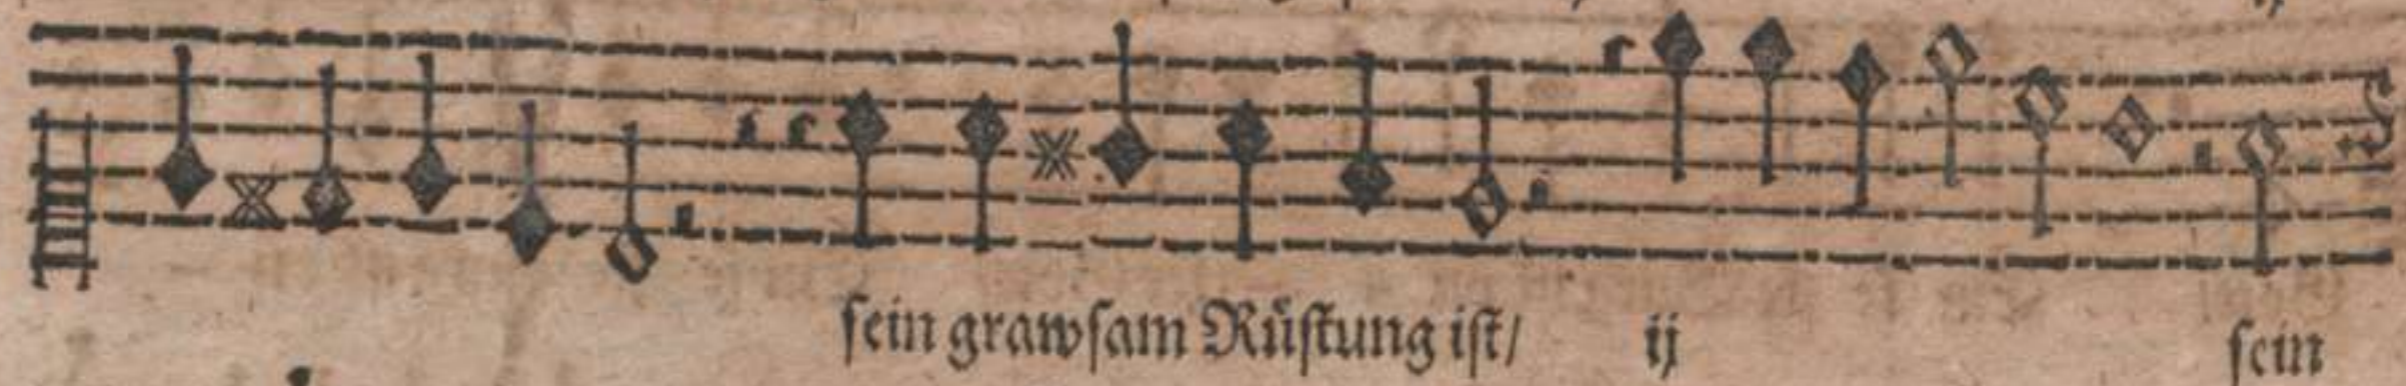 ſein grawſam Rüſtung iſt/ ij ſein